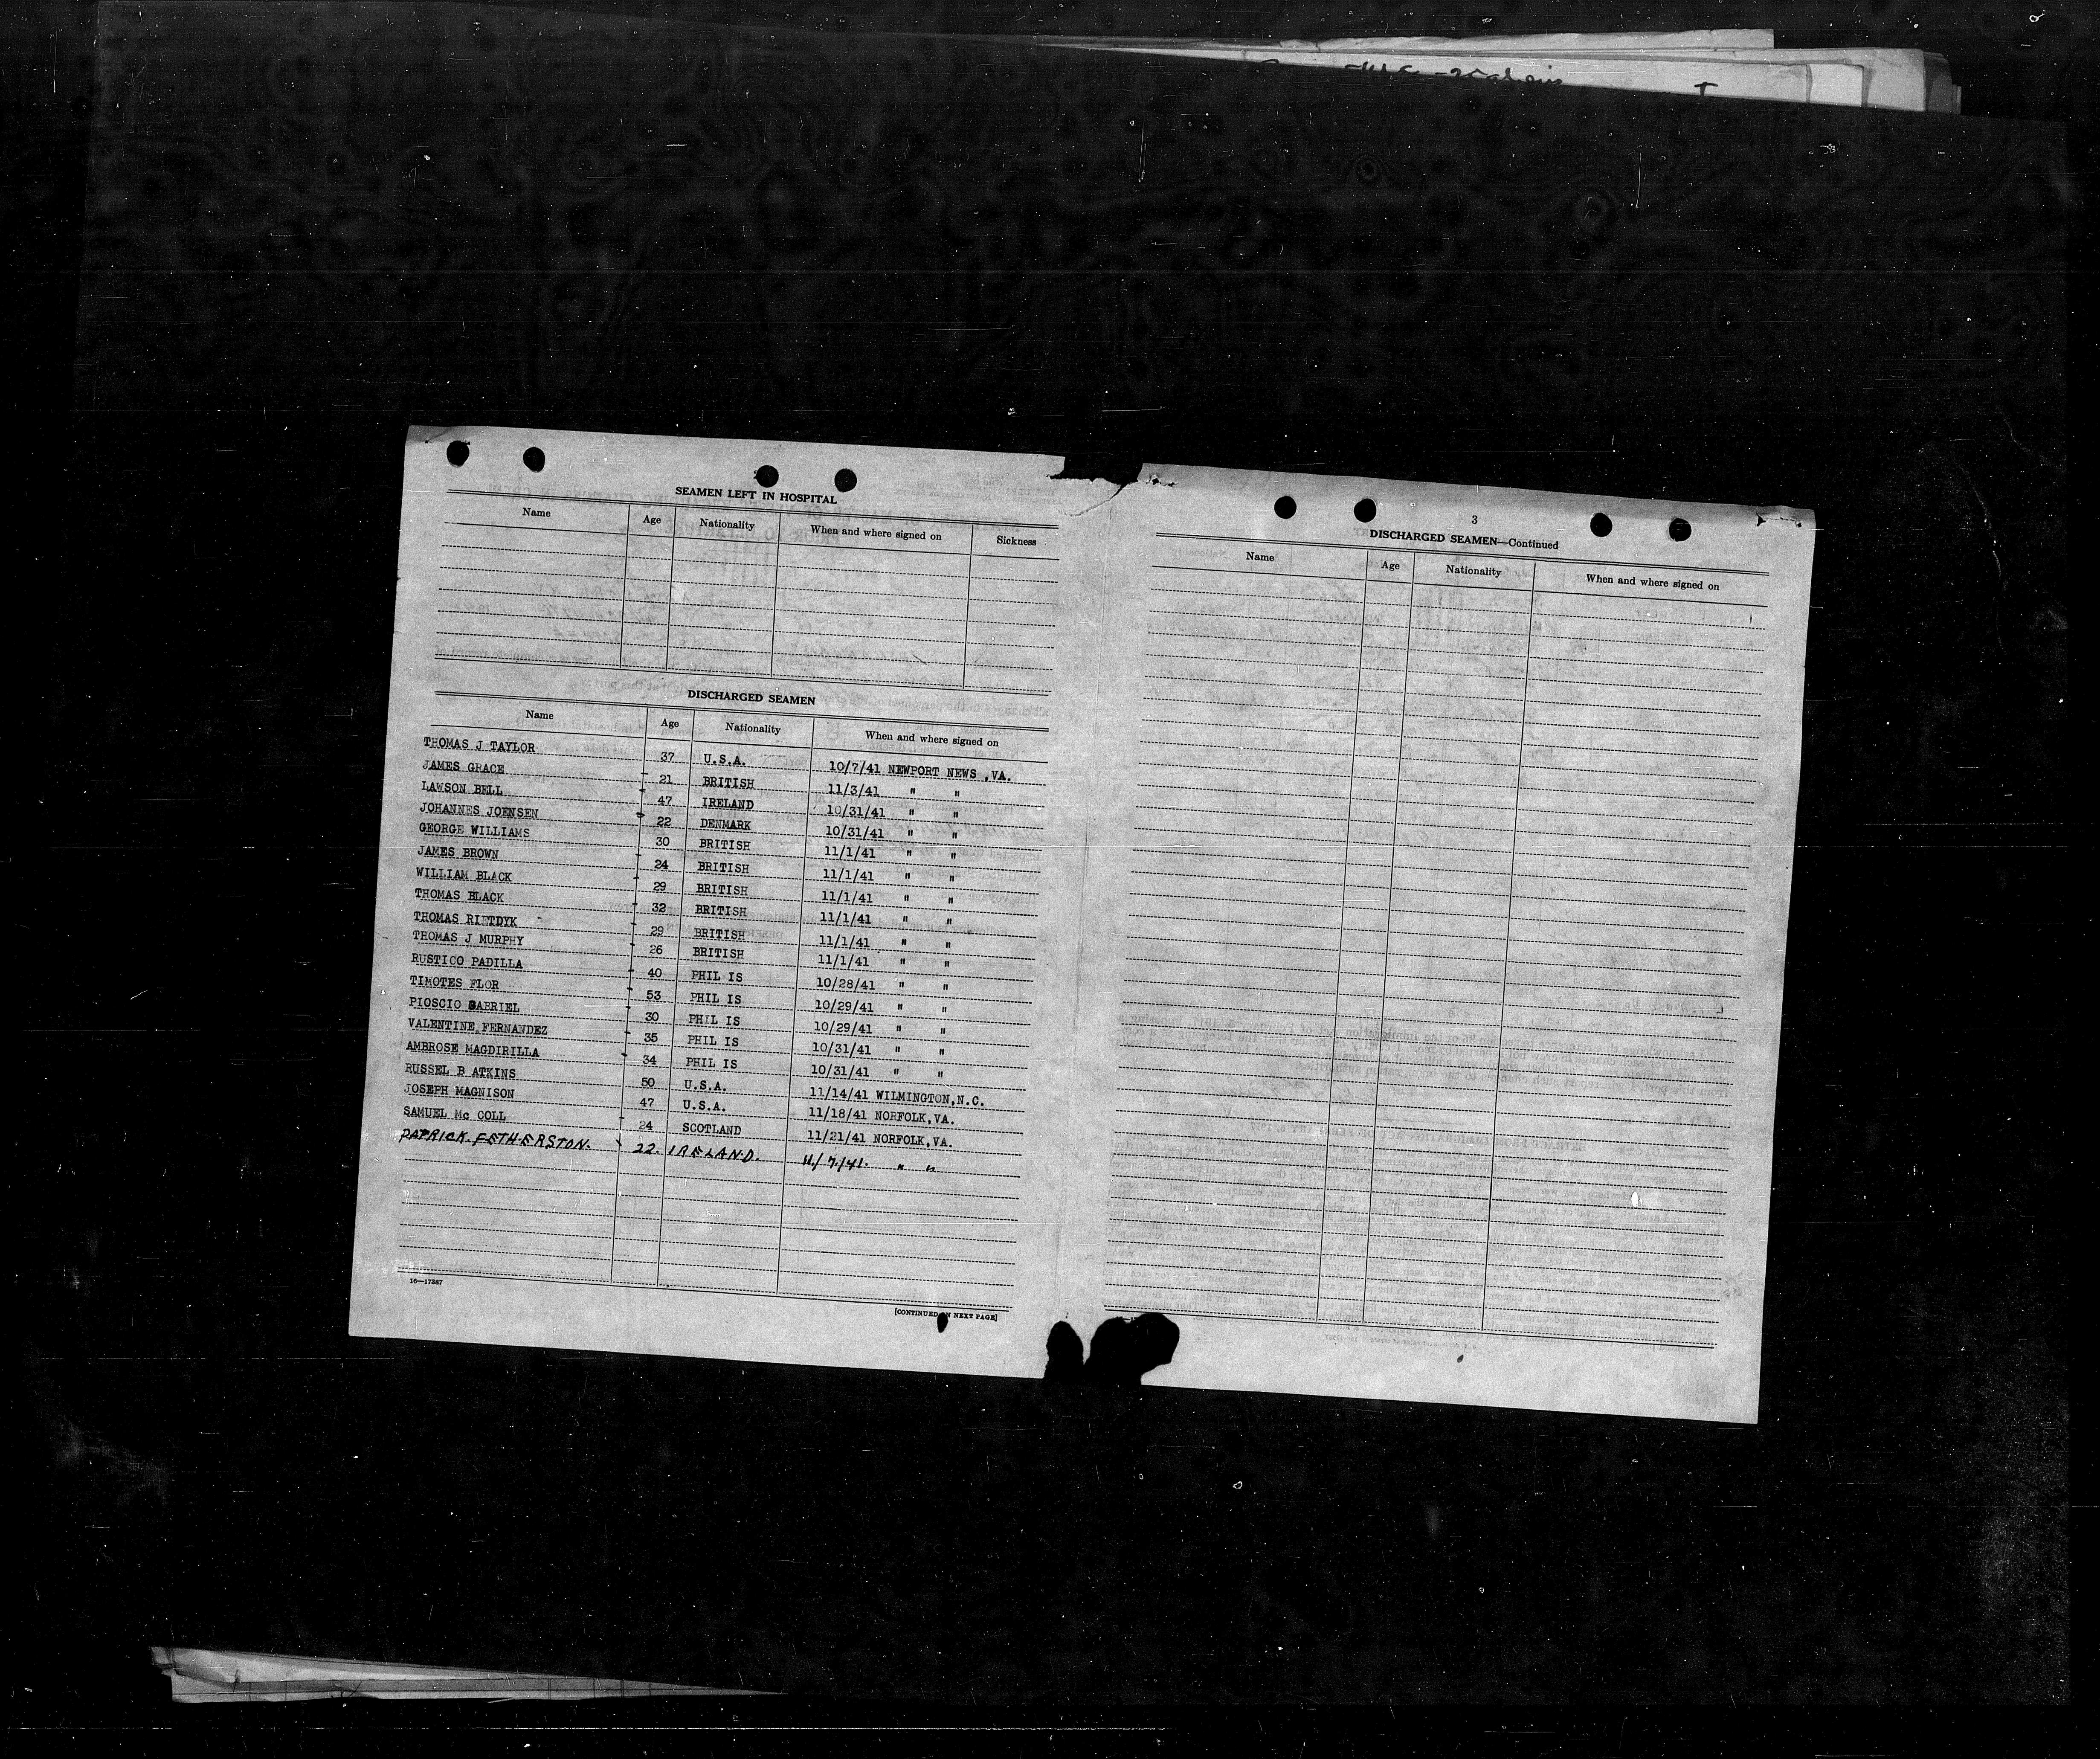 SEAMEN LEFT IN HOSPITAL
Name Age Nationality When and where signed on Sickness
DISCHARGED SEAMEN
Name Age Nationality When and where signed on
THOMAS J TAYLOR 37 U.S.A. 10/7/41 NEWPORT NEWS ,VA.
JAMES GRACE 21 BRITISH 11/3/41 " "
LAWSON BELL 47 IRELAND 10/31/41 " "
JOHANNES JOENSEN 22 DENMARK 10/31/41 " "
GEORGE WILLIAMS 30 BRITISH 11/1/41 " "
JAMES BROWN 24 BRITISH 11/1/41 " "
WILLIAM BLACK 29 BRITISH 11/1/41 " "
THOMAS BLACK 32 BRITISH 11/1/41 " "
THOMAS RIETDYK 29 BRITISH 11/1/41 " "
THOMAS J MURPHY 26 BRITISH 11/1/41 " "
RUSTICO PADILLA 40 PHIL IS 10/28/41 " "
TIMOTES FLOR 53 PHIL IS 10/29/41 " "
PIOSCIO GABRIEL 30 PHIL IS 10/29/41 " "
VALENTINE FERNANDEZ 35 PHIL IS 10/31/41 " "
AMBROSE MAGDIRILLA 34 PHIL IS 10/31/41 " "
RUSSEL B ATKINS 50 U.S.A. 11/14/41 WILMINGTON,N.C.
JOSEPH MAGNISON 47 U.S.A. 11/18/41 NORFOLK,VA.
SAMUEL Mc COLL 24 SCOTLAND 11/21/41 NORFOLK,VA.
PATRICK FETHERSTON. 22. IRELAND. 11/7/41. " "
16—17387
[CONTINUED ON NEXT PAGE]
3
DISCHARGED SEAMEN—Continued
Name Age Nationality When and where signed on